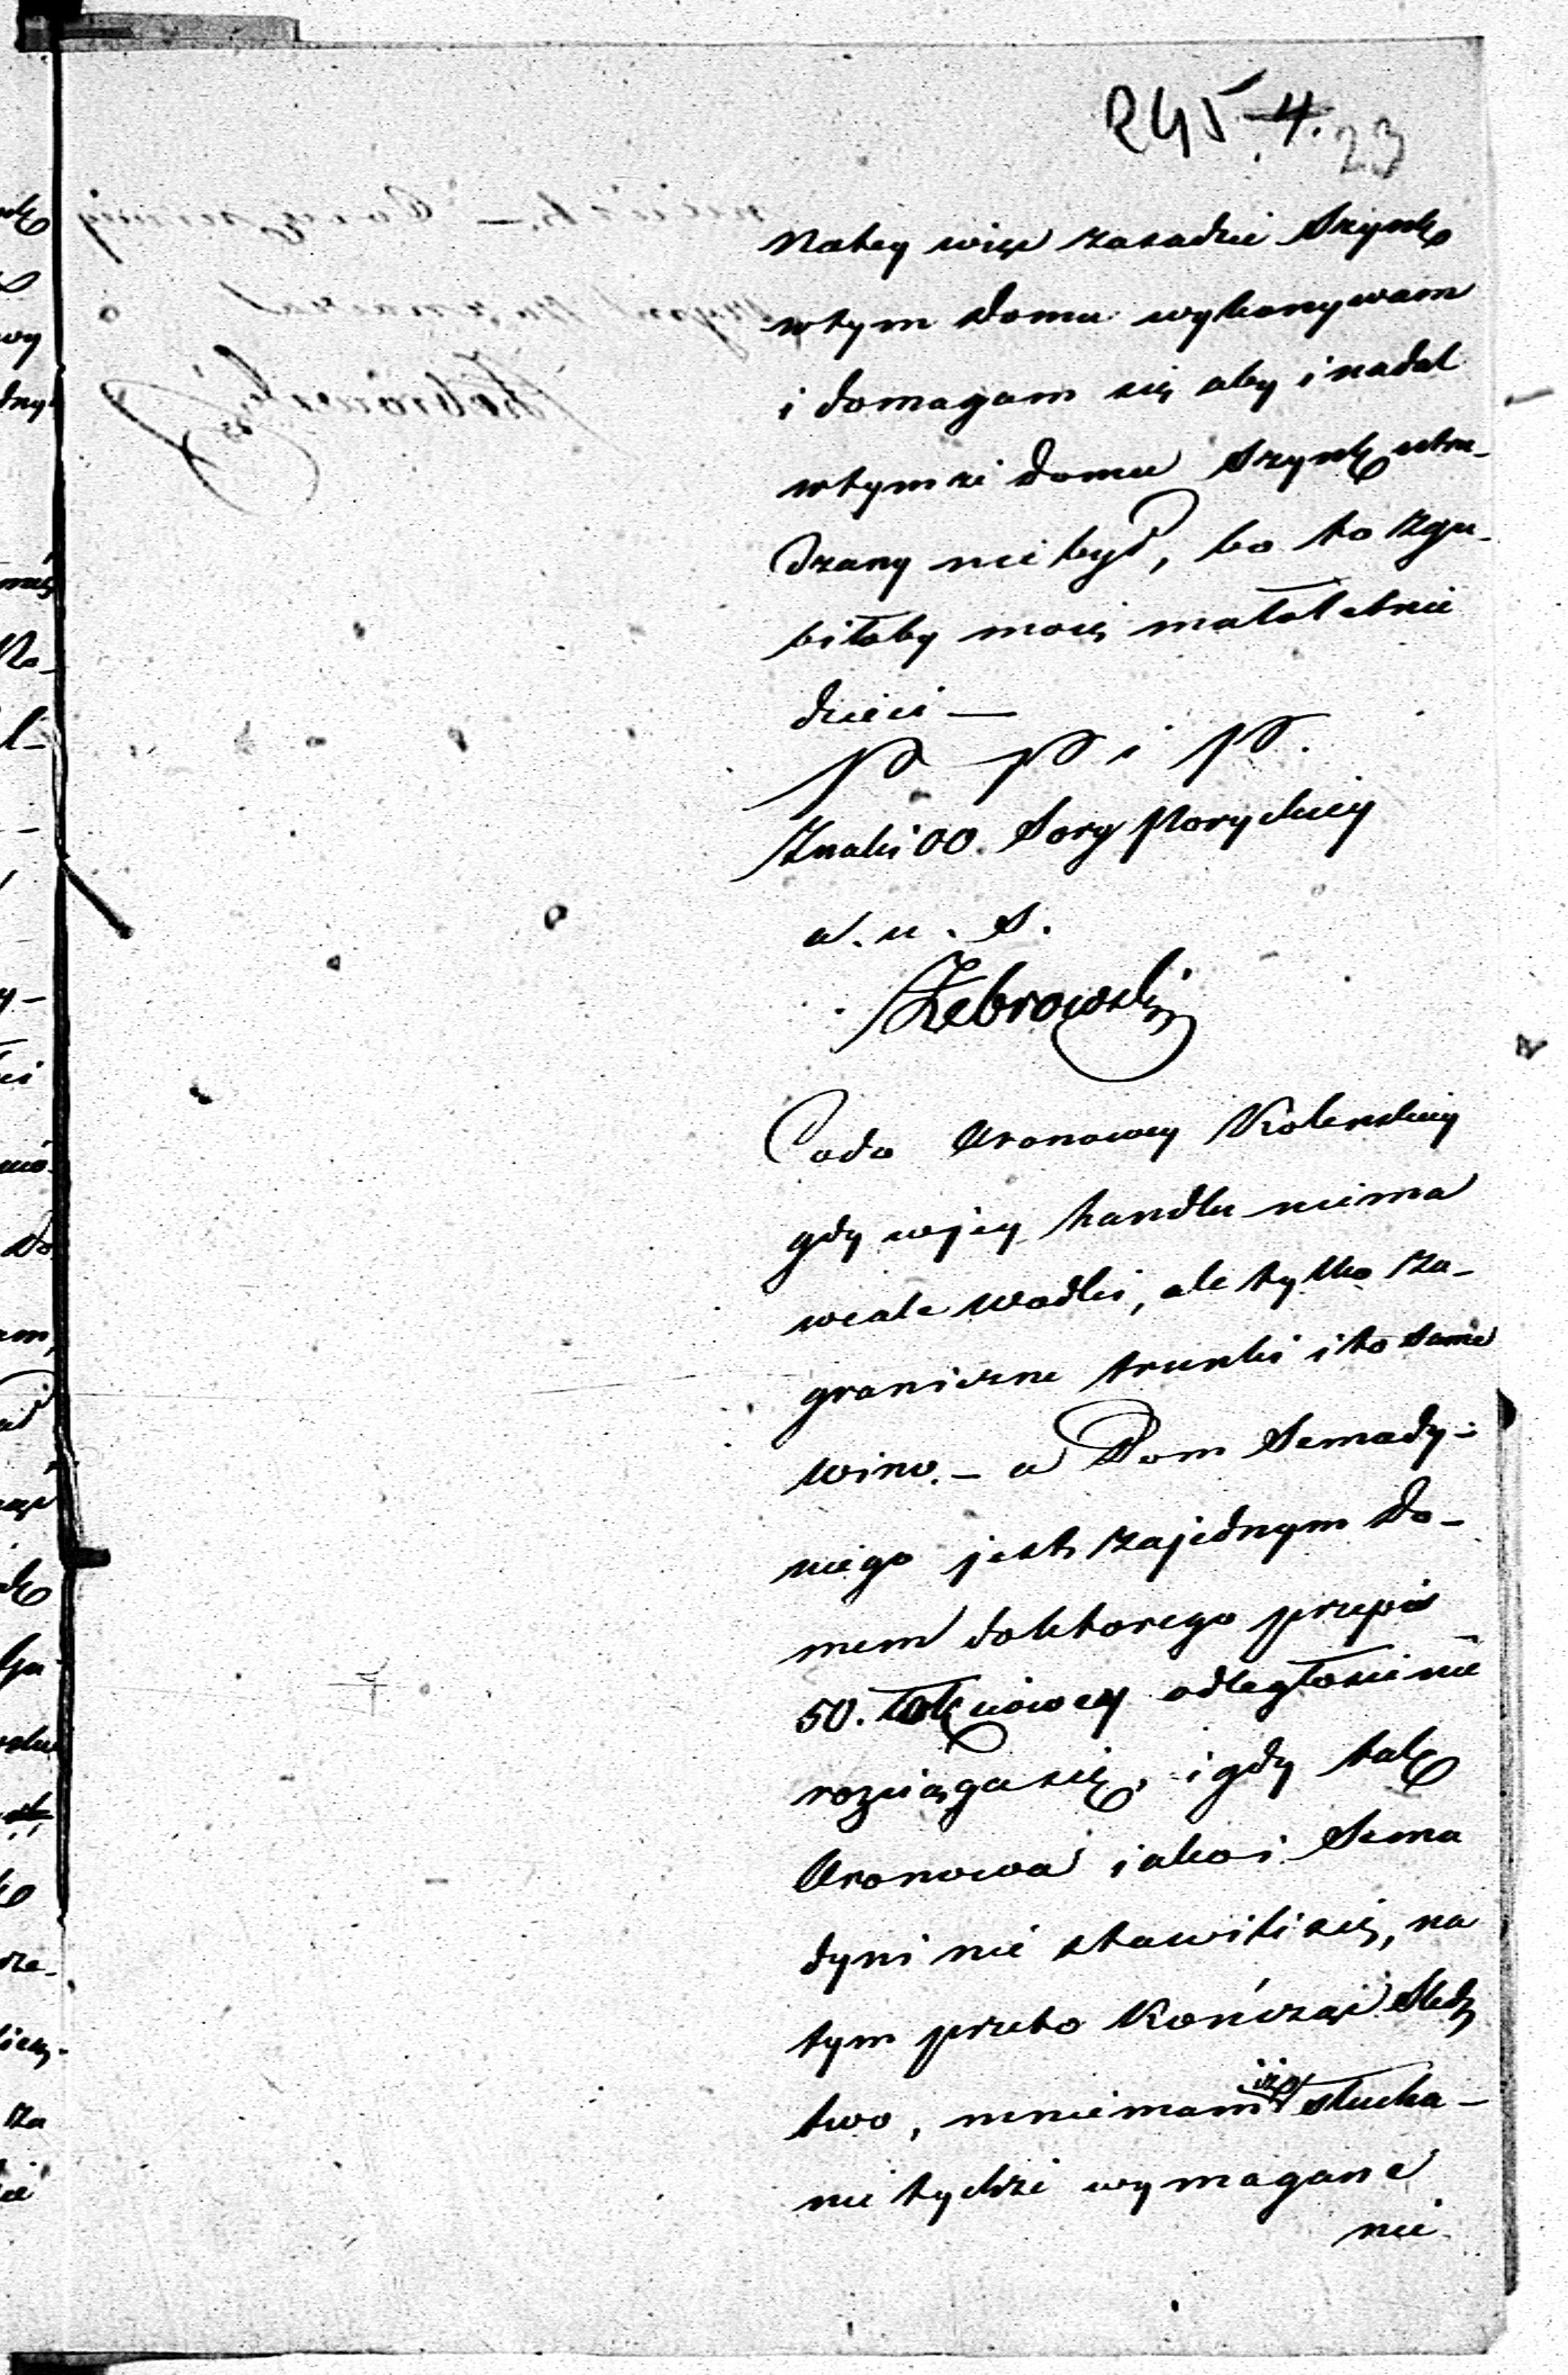 245 4. 23
Natey więc zasadzie Szynk
wtym domu wykonywam
i domagam się aby i nadal
wtymże domu Szynk utru-
dzany nie był, bo to zgu-
biłoby moię małoletnie
dzieci —
P P i P.
Znaki 00. Sory Poryckiey
a. u. s.
Żebrowski
Codo Aronowey Kolerskiey
gdy wjey handlu niema
wcale wodki, ale tylko za-
graniczne trunki i to same
wino. – a Dom Semady-
niego jest zajednym do-
mem doktorego przepis
50. łokciowey odległości nie
rozciąga się, i gdy tak
Aronowa iako i Sema
dyni nie stawili się, na
tym przeto Kończąc Śledz
two, mniemam iż słucha-
nie tychże wymagane
nie